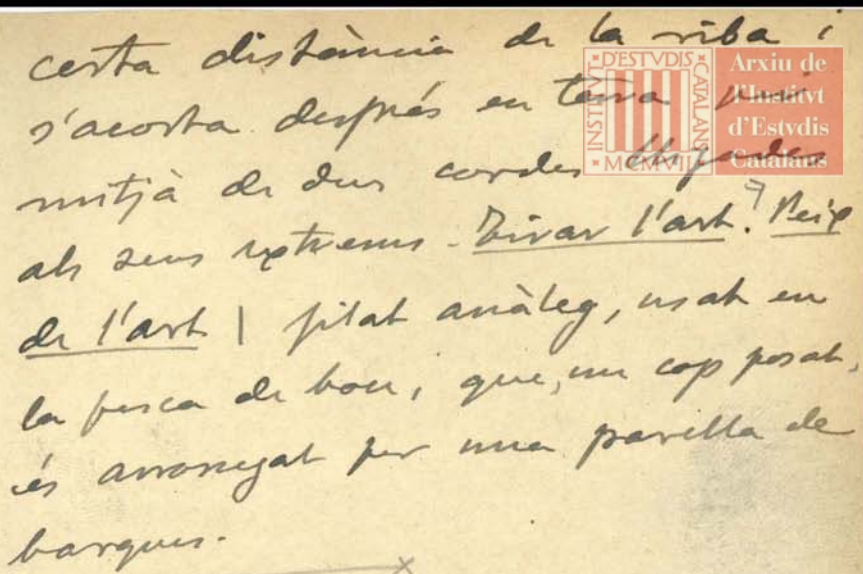 certa distància de la riba i
s'acosta després en terra per
mitjà de dues cordes lligades
als seus extrems. Tirar l'art. Peix
de l'art | filat anàleg, usat en
la pesca de bou, i que, un cop posat,
és arrossegat per una parella de
barques.
INSTITVT D'ESTVDIS CATALANS
MCMVII
Arxiu de
l'Institvt
d'Estvdis
Catalans